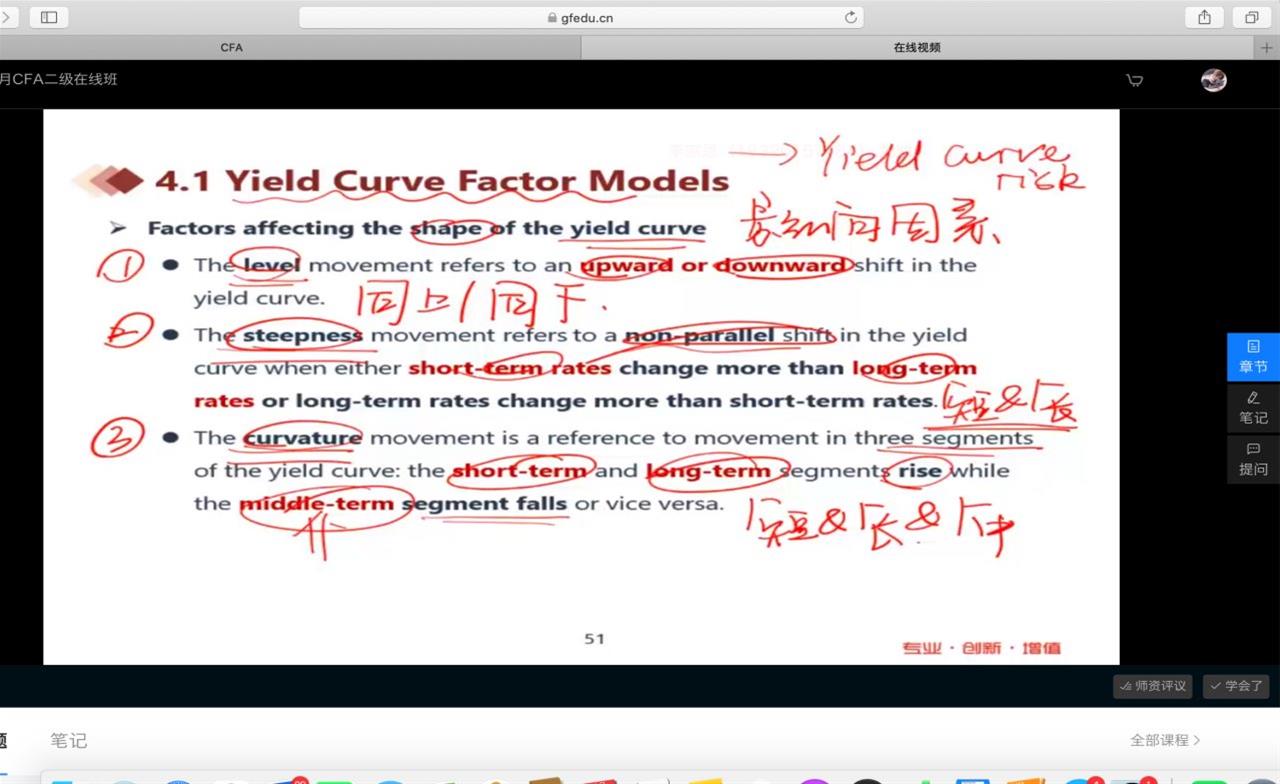 gfedu.cn
CFA
在线视频
月CFA二级在线班
→ Yield curve
risk
4.1 Yield Curve Factor Models
➢ Factors affecting the shape of the yield curve
影响的因素
① ● The level movement refers to an upward or downward shift in the
yield curve.
同上/同下.
② ● The steepness movement refers to a non-parallel shift in the yield
curve when either short-term rates change more than long-term
rates or long-term rates change more than short-term rates.
r短&r长
③ ● The curvature movement is a reference to movement in three segments
of the yield curve: the short-term and long-term segments rise while
the middle-term segment falls or vice versa.
r短&r长&r中
51
专业·创新·增值
章节
笔记
提问
师资评议
学会了
题
笔记
全部课程